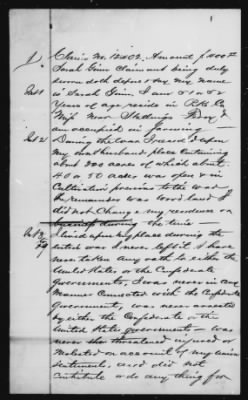 1 Claim No. 12402. Amount $ 400.00
Sarah Ginn Claimant being duly
sworn doth depose & say My name
Int 1 is Sarah Ginn. I am 51 or 52
Years of age reside in
Miss Near &
am occupied in farming —
Int 2 During the war I resided upon
my place containing
about 200 acres of which about
40 or 50 acres was open & in
Cultivation previous to the war
the remainder was wood land I
did not Change my residence or
business during the time
Int 3 I lived upon my place during the
entire war & never left it I have
never taken any oath to either the
United States or the Confederate
Governments, I was never in any
Manner Connected with the Confederate
Government, was never arrested
by either the Confederate or the
United States governments — was
never threatened injured or
Molested on account of my union
sentiments, and did not
Contribute or do any thing for